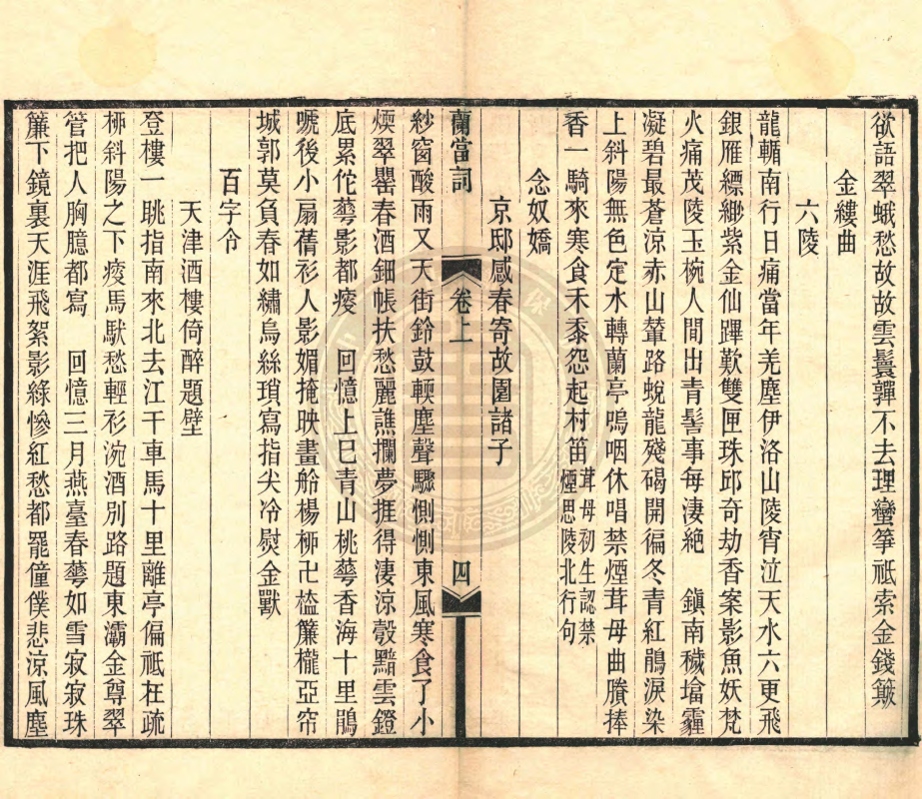 欲語翠蛾愁故故雲鬟嚲不去理蠻箏祇索金錢簸
金縷曲
六陵
龍輴南行日痛當年羌塵伊洛山陵宵泣天水六更飛
銀雁縹緲紫金仙蹕歎雙匣珠邱奇劫香案影魚妖梵
火痛茂陵玉椀人間出青髻事每淒絶　鎮南穢墖霾
凝碧最蒼涼赤山輦路蛻龍殘碣開徧冬青紅鵑淚染
上斜陽無色定水轉蘭亭嗚咽休唱禁煙茸母曲賸捧
香一騎來寒食禾黍怨起村笛茸母初生認禁煙思陵北行句
念奴嬌
京邸感春寄故園諸子
蘭當詞
卷上
四
紗窗酸雨又天街鈴鼓輭塵聲驟惻惻東風寒食了小
煗翠罌春酒鈿帳扶愁麗譙攔夢捱得淒涼彀黯雲鐙
底累佗蕚影都瘦　回憶上巳青山桃蕚香海十里鵑
嗁後小扇蒨衫人影媚掩映畫舲楊桺卍㯭簾櫳亞帘
城郭莫負春如繡烏絲瑣寫指尖冷熨金獸
百字令
天津酒樓倚醉題壁
登樓一眺指南來北去江干車馬十里離亭偏祇在疏
桺斜陽之下瘦馬馱愁輕衫涴酒別路題東灞金尊翠
管把人胸臆都寫　回憶三月燕臺春蕚如雪寂寂珠
簾下鏡裏天涯飛絮影綠慘紅愁都罷僮僕悲涼風塵